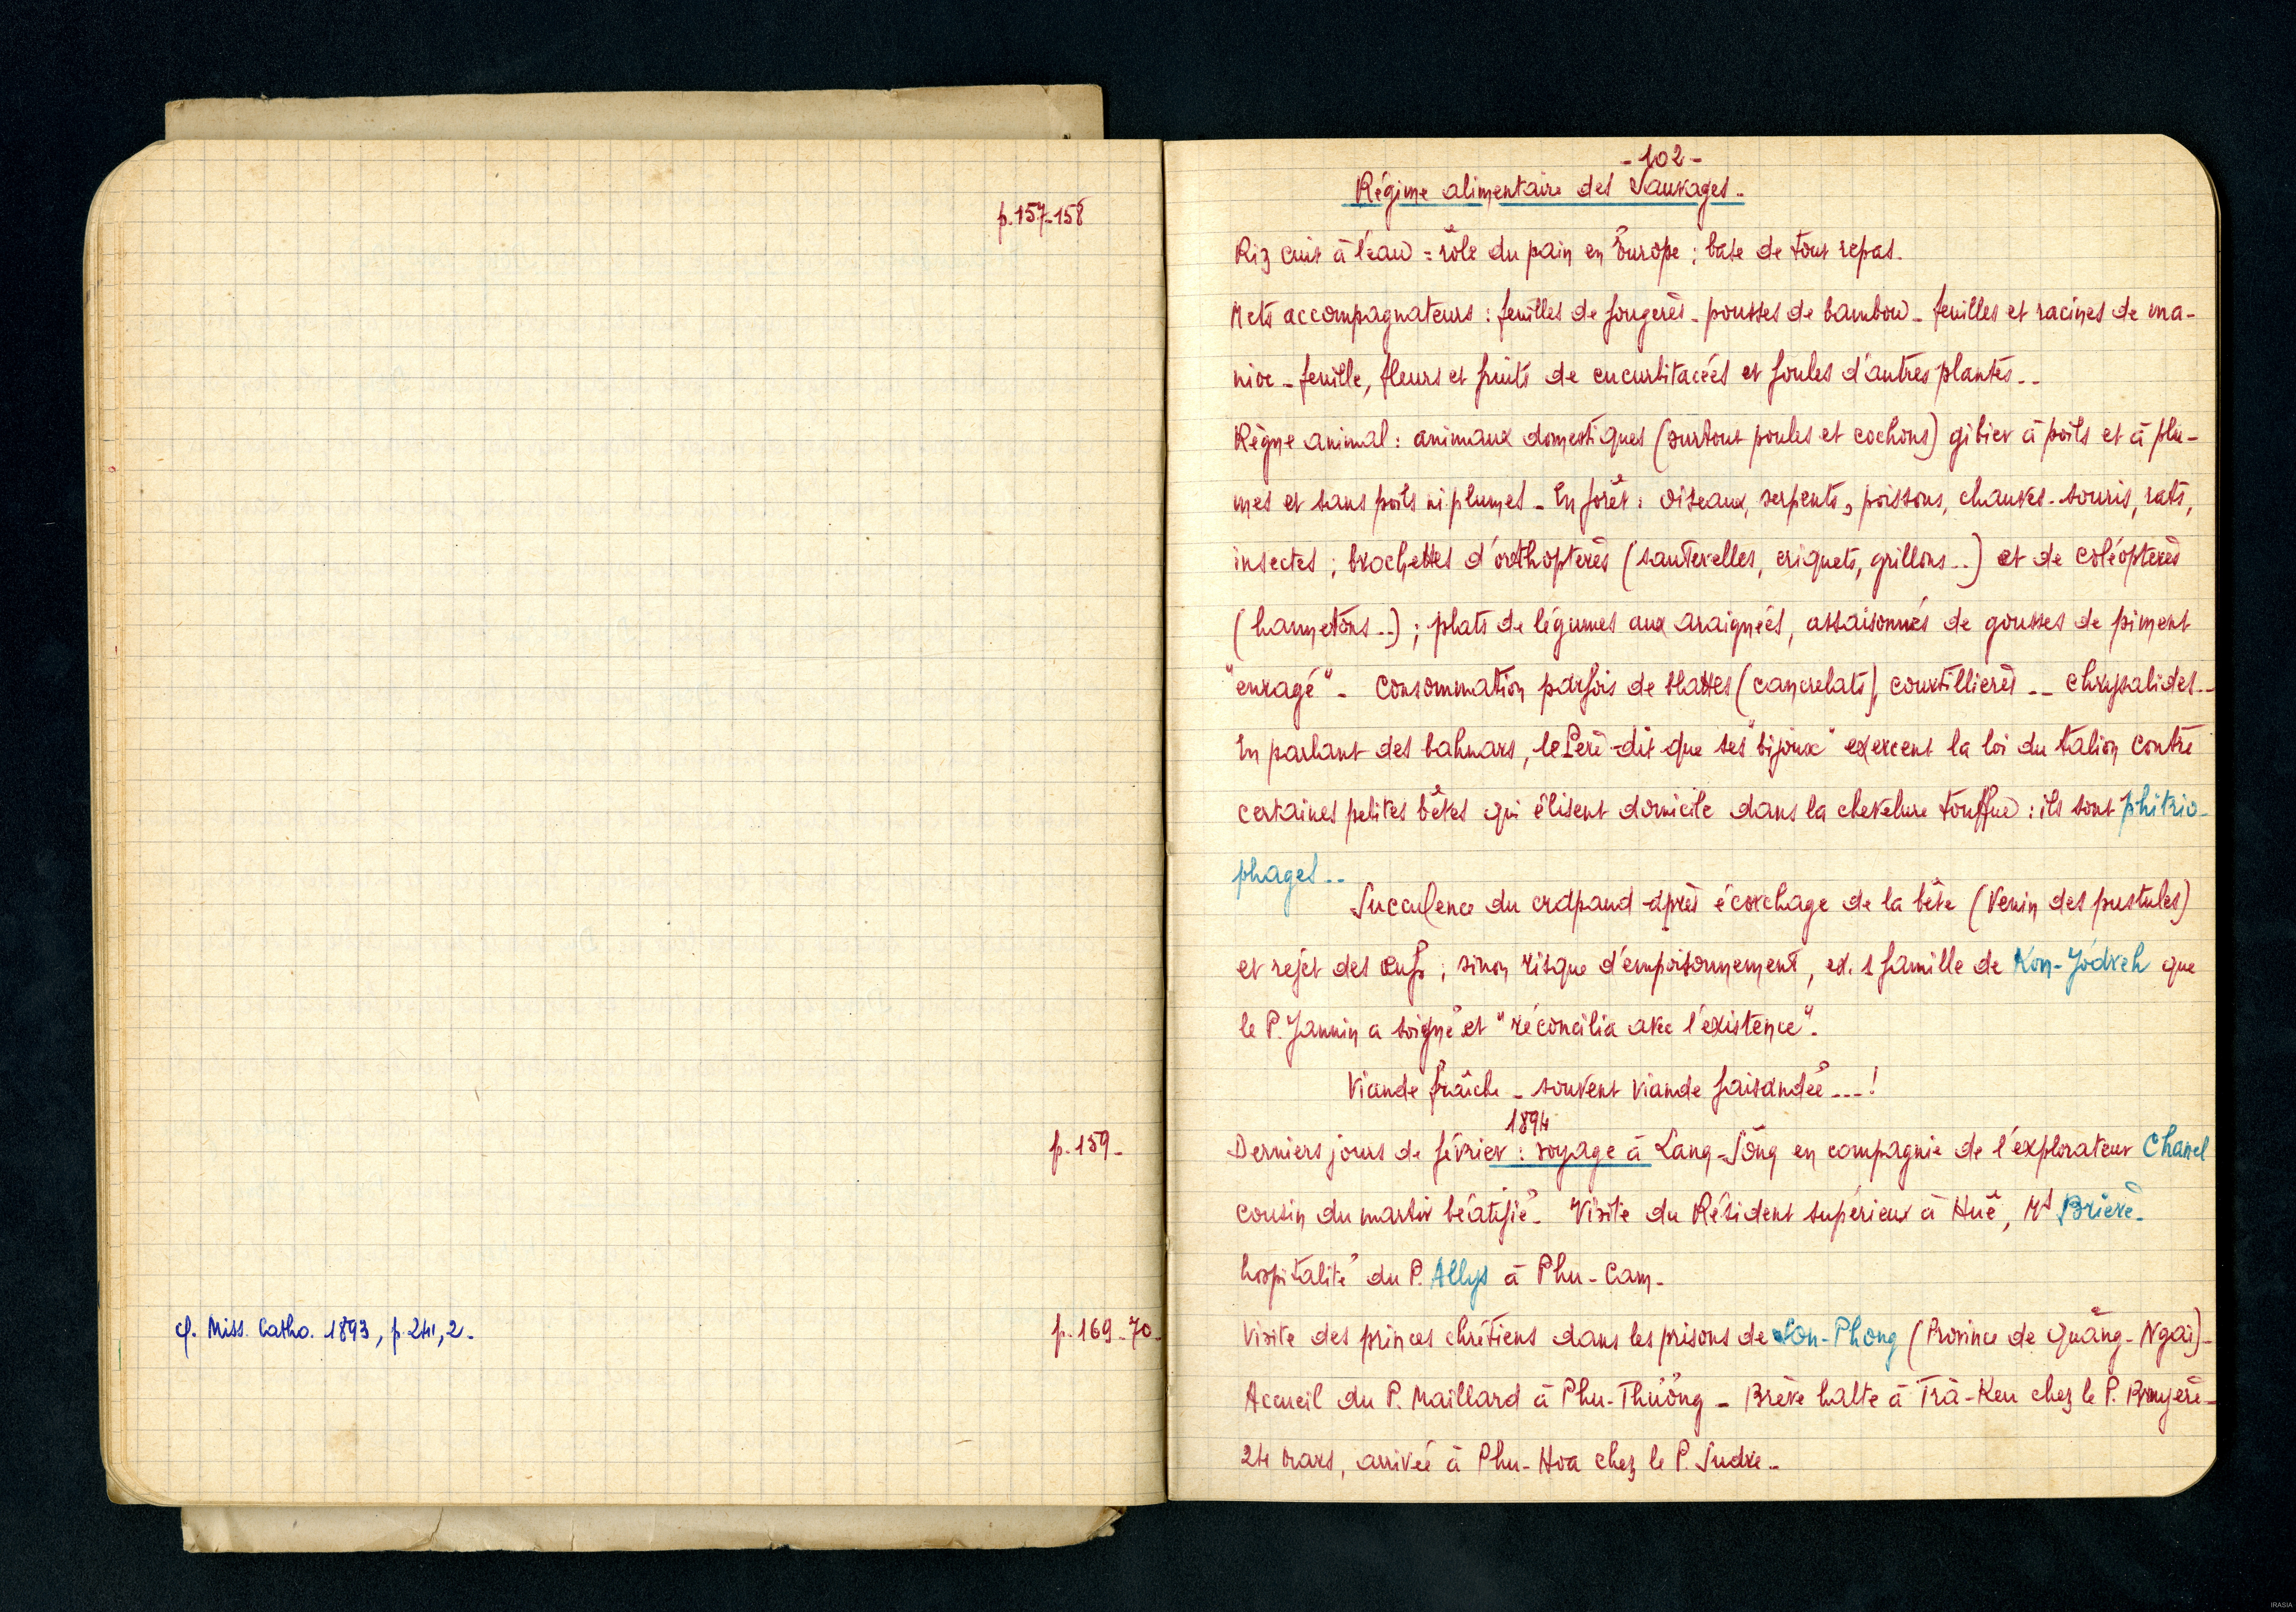 p. 157-158
p. 159-
cf. Miss. Catho. 1893, p. 241, 2.
p. 169-70-
- 102 -
Régime alimentaire des Sauvages.
Riz cuit à l'eau = rôle du pain en Europe ; base de tout repas.
Mets accompagnateurs : feuilles de fougères - pousses de bambou - feuilles et racines de ma-
nioc - feuille, fleurs et fruits de cucurbitacées et foules d'autres plantes..
Règne animal : animaux domestiques (surtout poules et cochons) gibier à poils et à plu-
mes et sans poils ni plumes - En forêt : oiseaux, serpents, poissons, chauves-souris, rats,
insectes ; brochettes d'orthoptères (sauterelles, criquets, grillons..) et de coléoptères
(hannetons..) ; plats de légumes aux araignées, assaisonnés de gousses de piment
"enragé" - Consommation parfois de blattes (cancrelats), courtillières .. chrysalides..
En parlant des bahnars, le Père dit que ses "bijoux" exercent la loi du talion contre
certaines petites bêtes qui élisent domicile dans la chevelure touffue : ils sont phitrio-
phages..
Succulence du crapaud après écorchage de la bête (venin des pustules)
et rejet des œufs ; sinon risque d'empoisonnement, ex. 1 famille de Kon-Jódreh que
le P. Jannin a soigné et "réconcilia avec l'existence".
Viande fraîche - souvent viande faisandée ...!
1894
Derniers jours de février : voyage à Lang-Sông en compagnie de l'explorateur Chanel
cousin du martir béatifié. Visite du Résident supérieur à Huê, Mr Brière.
hospitalité du P. Allys à Phu-Cam.
Visite des princes chrétiens dans les prisons de Son-Phong (Province de Quãng-Ngai)-
Accueil du P. Maillard à Phu-Thuông - Brève halte à Trà-Keu chez le P. Bruyère-
24 mars, arrivée à Phu-Hoa chez le P. Sudre..